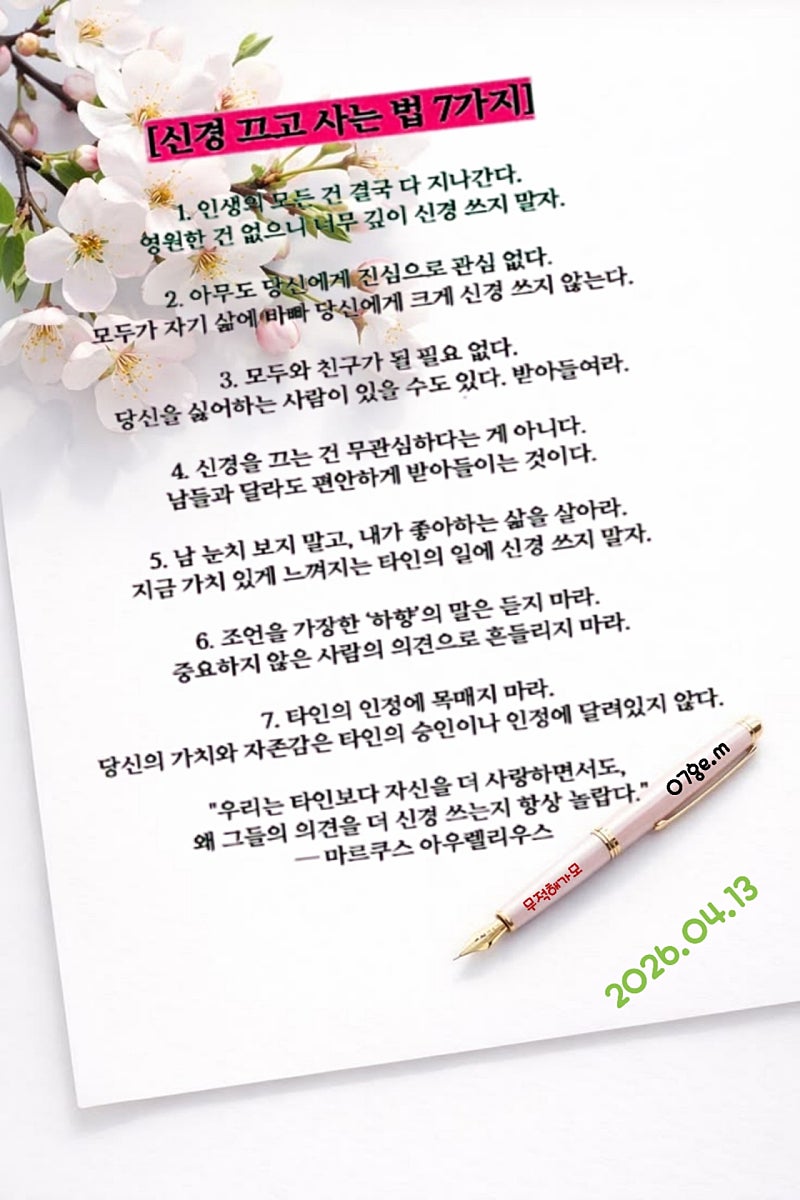 [신경 끄고 사는 법 7가지]
1. 인생의 모든 건 결국 다 지나간다.
영원한 건 없으니 너무 깊이 신경 쓰지 말자.
2. 아무도 당신에게 진심으로 관심 없다.
모두가 자기 삶에 바빠 당신에게 크게 신경 쓰지 않는다.
3. 모두와 친구가 될 필요 없다.
당신을 싫어하는 사람이 있을 수도 있다. 받아들여라.
4. 신경을 끄는 건 무관심하다는 게 아니다.
남들과 달라도 편안하게 받아들이는 것이다.
5. 남 눈치 보지 말고, 내가 좋아하는 삶을 살아라.
지금 가치 있게 느껴지는 타인의 일에 신경 쓰지 말자.
6. 조언을 가장한 '하향'의 말은 듣지 마라.
중요하지 않은 사람의 의견으로 흔들리지 마라.
7. 타인의 인정에 목매지 마라.
당신의 가치와 자존감은 타인의 승인이나 인정에 달려있지 않다.
"우리는 타인보다 자신을 더 사랑하면서도,
왜 그들의 의견을 더 신경 쓰는지 항상 놀랍다."
— 마르쿠스 아우렐리우스
079e.m
2026.04.13